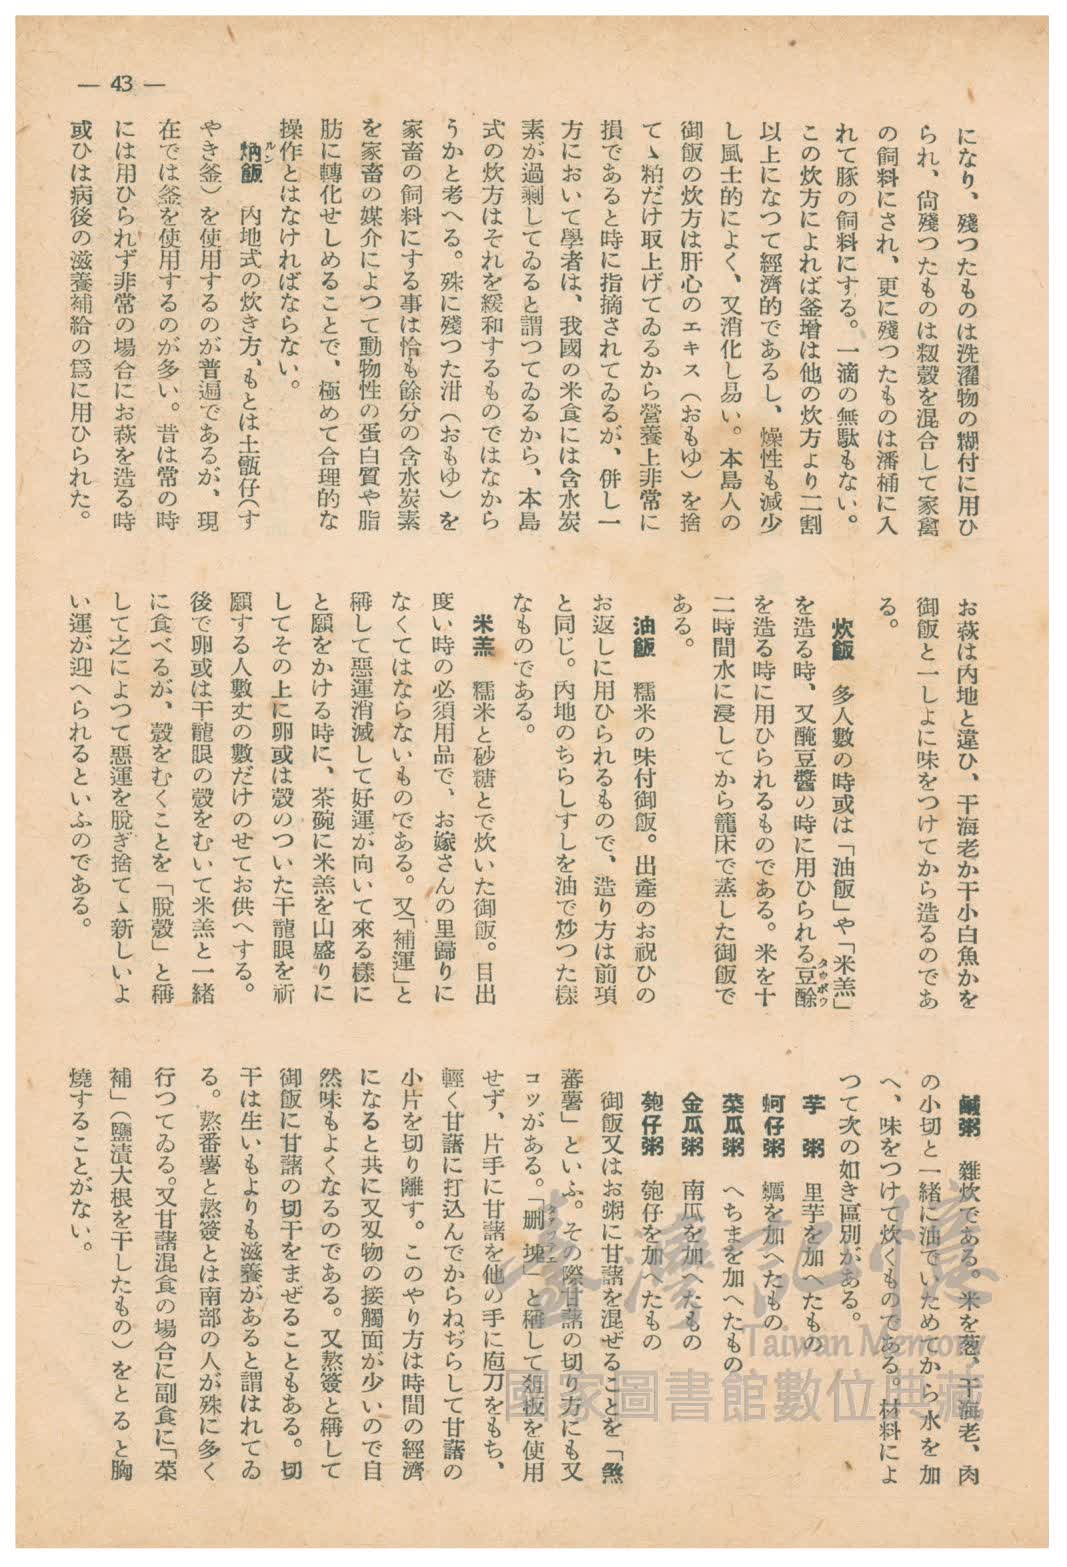 — 43 —
になり、殘つたものは洗濯物の糊付に用ひ
られ、尙殘つたものは籾殼を混合して家禽
の飼料にされ、更に殘つたものは潘桶に入
れて豚の飼料にする。一滴の無駄もない。
この炊方によれば釜增は他の炊方より二割
以上になつて經濟的であるし、燥性も減少
し風士的によく、又消化し易い。本島人の
御飯の炊方は肝心のエキス（おもゆ）を捨
てゝ粕だけ取上げてゐるから營養上非常に
損であると時に指摘されてゐるが、併し一
方において學者は、我國の米食には含水炭
素が過剩してゐると謂つてゐるから、本島
式の炊方はそれを緩和するものではなから
うかと考へる。殊に殘つた泔（おもゆ）を
家畜の飼料にする事は恰も餘分の含水炭素
を家畜の媒介によつて動物性の蛋白質や脂
肪に轉化せしめることで、極めて合理的な
操作とはなければならない。
炳飯 內地式の炊き方、もとは土甑仔（す
ルン
やき釜）を使用するのが普遍であるが、現
在では釜を使用するのが多い。昔は常の時
には用ひられず非常の場合にお萩を造る時
或ひは病後の滋養補給の爲に用ひられた。
お萩は內地と違ひ、干海老か干小白魚かを
御飯と一しよに味をつけてから造るのであ
る。
炊飯 多人數の時或は「油飯」や「米羔」
を造る時、又醃豆醬の時に用ひられる豆酴
タウポウ
を造る時に用ひられるものである。米を十
二時間水に浸してから籠床で蒸した御飯で
ある。
油飯 糯米の味付御飯。出產のお祝ひの
お返しに用ひられるもので、造り方は前項
と同じ。內地のちらしすしを油で炒つた樣
なものである。
米羔 糯米と砂糖とで炊いた御飯。目出
度い時の必須用品で、お嫁さんの里歸りに
なくてはならないものである。又「補運」と
稱して惡運消滅して好運が向いて來る樣に
と願をかける時に、茶碗に米羔を山盛りに
してその上に卵或は殼のついた干龍眼を祈
願する人數丈の數だけのせてお供へする。
後で卵或は干龍眼の殼をむいて米羔と一緖
に食べるが、殼をむくことを「脫殼」と稱
して之によつて惡運を脫ぎ捨てゝ新しいよ
い運が迎へられるといふのである。
鹹粥 雜炊である。米を葱、干海老、肉
の小切と一緖に油でいためてから水を加
へ、味をつけて炊くものである。材料によ
つて次の如き區別がある。
芋 粥 里芋を加へたもの
蚵仔粥 蠣を加へたもの
菜瓜粥 へちまを加へたもの
金瓜粥 南瓜を加へたもの
匏仔粥 匏仔を加へたもの
御飯又はお粥に甘藷を混ぜることを「煞
蕃薯」といふ。その際甘藷の切り方にも又
コツがある。「删塊」と稱して俎板を使用
せず、片手に甘藷を他の手に庖刀をもち、
輕く甘藷に打込んでからねぢらして甘藷の
小片を切り離す。このやり方は時間の經濟
になると共に又刄物の接觸面が少いので自
然味もよくなるのである。又熬簽と稱して
御飯に甘藷の切干をまぜることもある。切
干は生いもよりも滋養があると謂はれてゐ
る。熬番薯と熬簽とは南部の人が殊に多く
行つてゐる。又甘藷混食の場合に副食に「菜
補」（鹽漬大根を干したもの）をとると胸
燒することがない。
臺灣記憶
Taiwan Memory
國家圖書館數位典藏